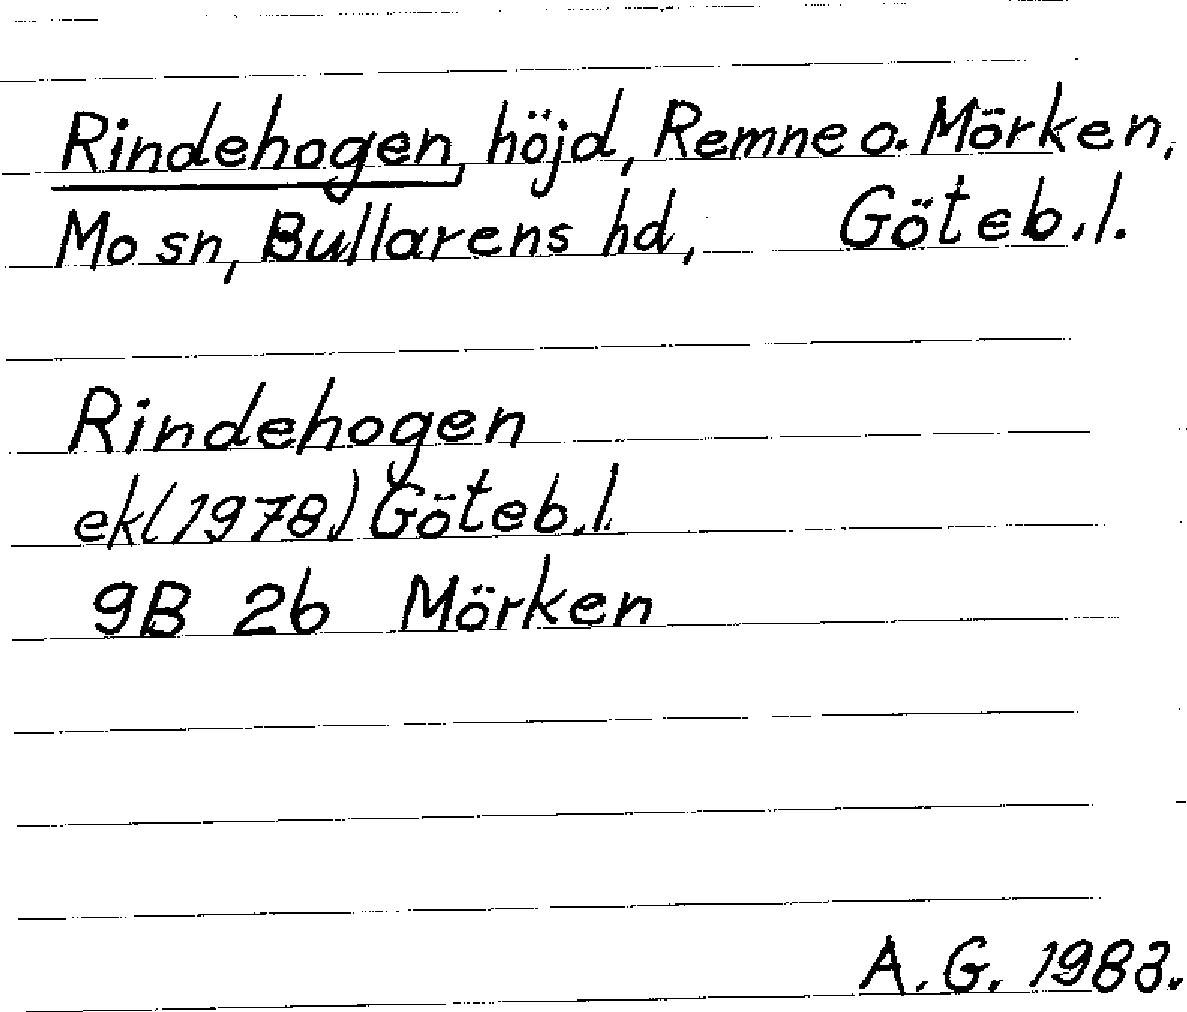 Rindehogen, höjd, Remne o. Mörken,
Mo sn, Bullarens hd, Göteb.l.
Rindehogen
ek(1978) Göteb.l.
9B 2b Mörken
A.G. 1983.